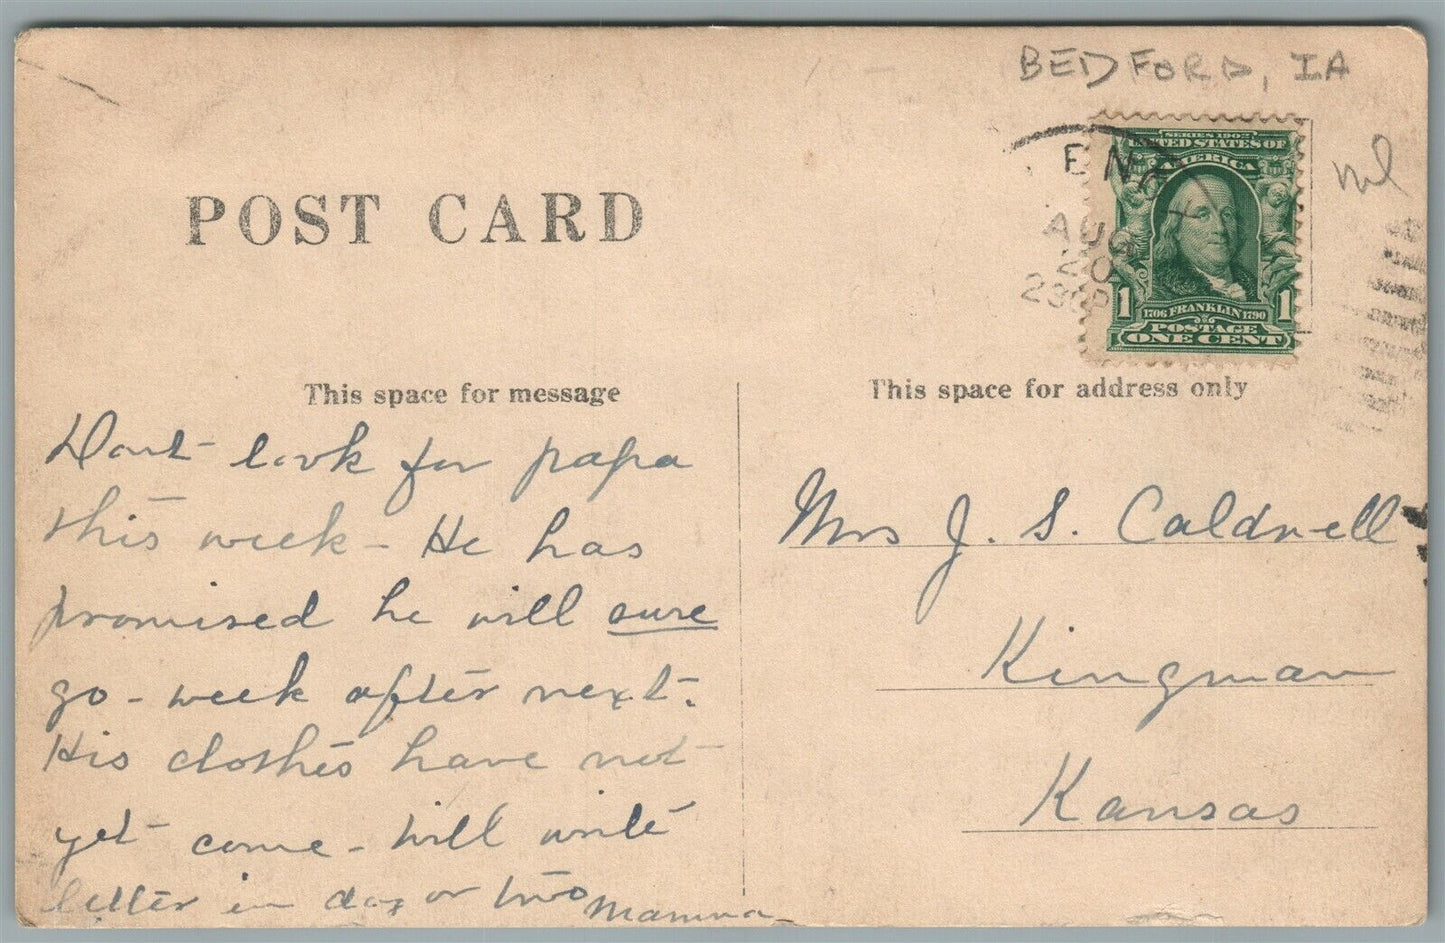 BEDFORD, IA
AUG
20
SERIES 1902
UNITED STATES OF
AMERICA
1 1706 FRANKLIN 1790 1
POSTAGE
ONE CENT
POST CARD
This space for message
Dont look for papa
this week - He has
promised he will sure
go - week after next.
His clothes have not
yet come - will write
letter in day or two Mamma
This space for address only
Mrs J. S. Caldwell
Kingman
Kansas